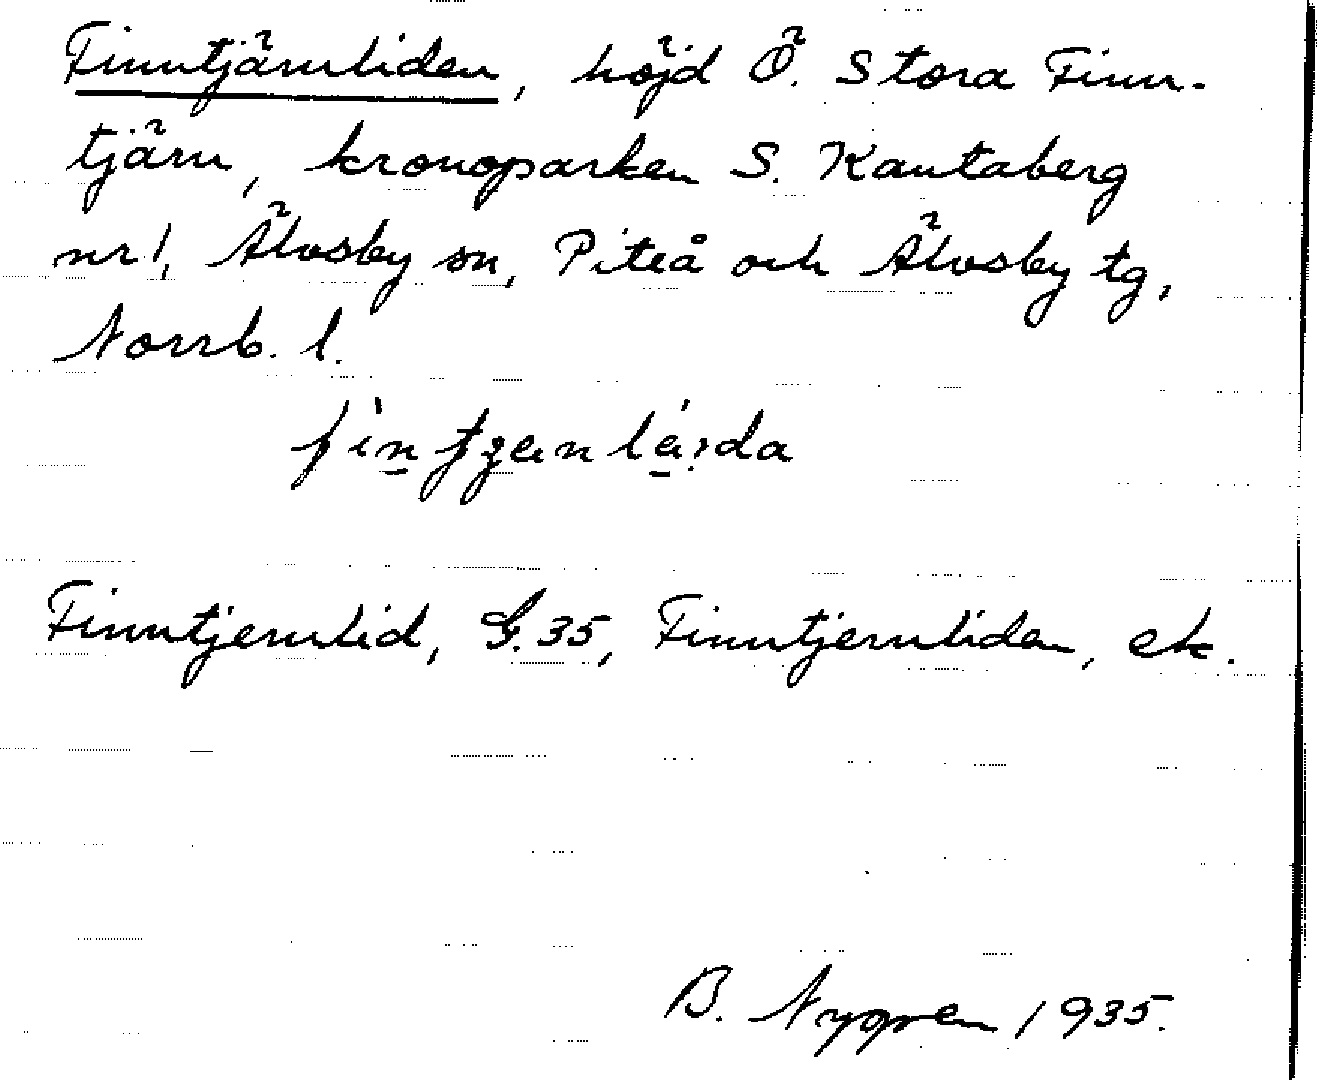 Finntjärnliden, höjd Ö. Stora Finn-
tjärn, kronoparken S. Kantaberg
nr 1, Älvsby sn, Piteå och Älvsby tg,
Norrb. l.
Finntjernlid, G. 35, Finntjernliden, ek.
B. Nygren 1935.